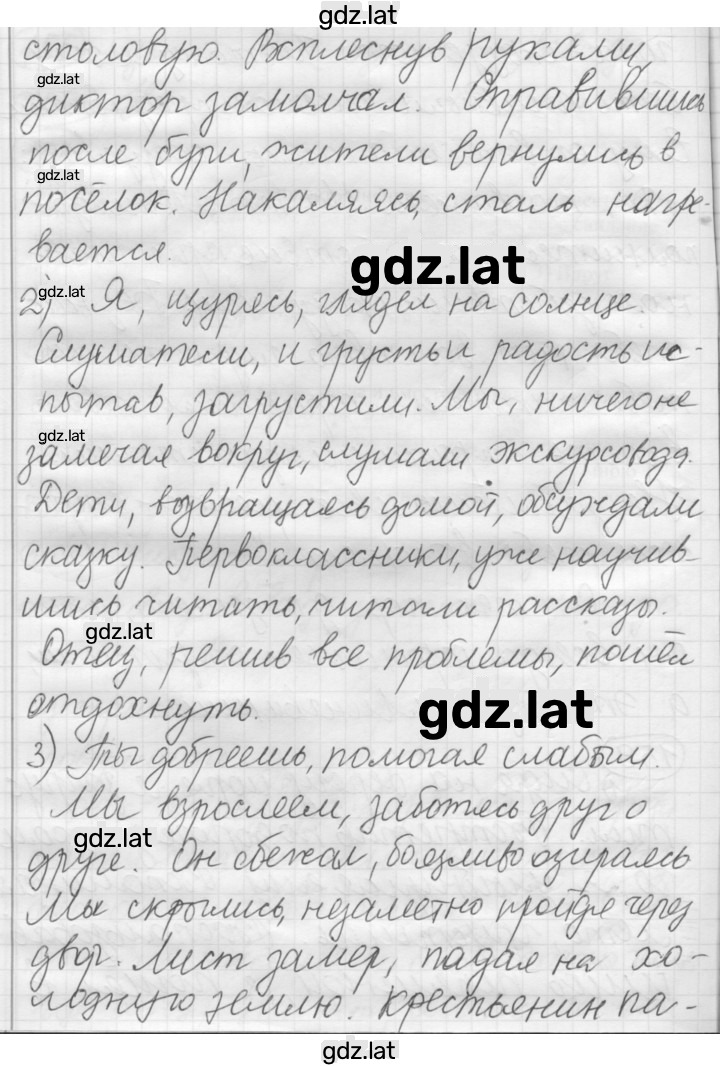 gdz.lat
столовую. Всплеснув руками,
gdz.lat
диктор замолчал. Оправившись
после бури, жители вернулись в
gdz.lat
посёлок. Накаляясь, сталь нагре-
вается.
gdz.lat
2) Я, щурясь, глядел на солнце.
gdz.lat
Слушатели, и грусть и радость ис-
пытав, загрустили. Мы, ничего не
gdz.lat
замечая вокруг, слушали экскурсовода.
Дети, возвращаясь домой, обсуждали
сказку. Первоклассники, уже научив-
шись читать, читали рассказы.
gdz.lat
Отец, решив все проблемы, пошёл
отдохнуть.
gdz.lat
3) Ты добреешь, помогая слабым.
Мы взрослеем, заботясь друг о
gdz.lat
друге. Он сбежал, боязливо озираясь
Мы скрылись, незаметно пройдя через
двор. Лист замер, падая на хо-
лодную землю. Крестьянин па-
gdz.lat